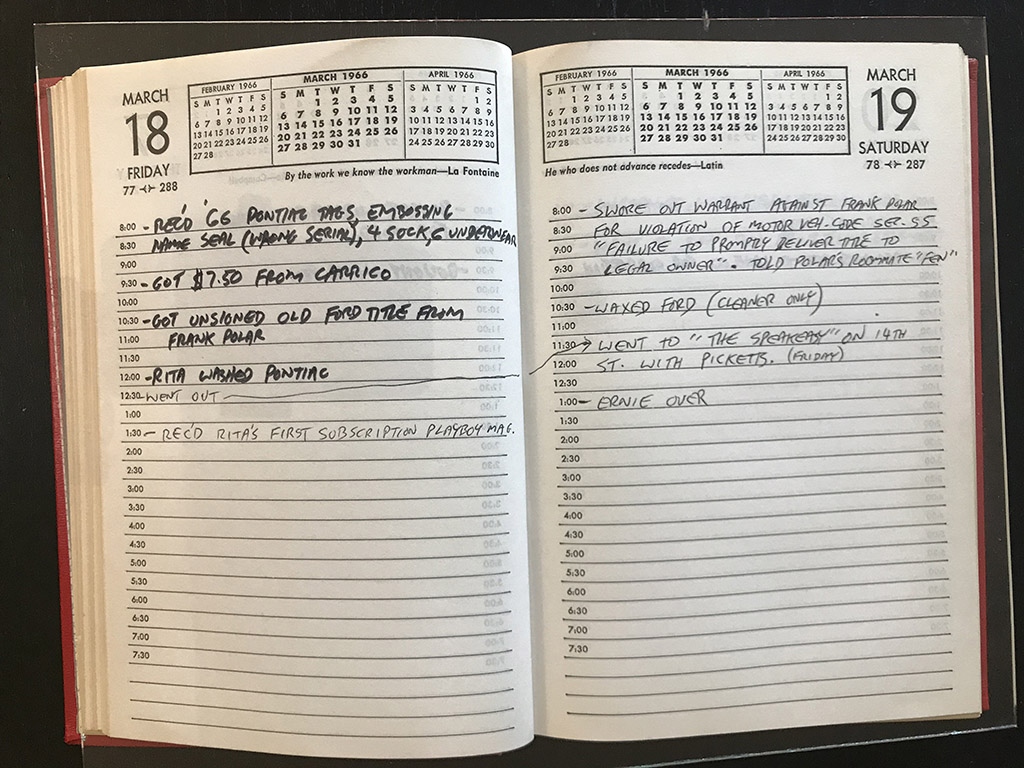 MARCH
18
FRIDAY
77 ⊰⊱ 288
FEBRUARY 1966
S M T W T F S
1 2 3 4 5
6 7 8 9 10 11 12
13 14 15 16 17 18 19
20 21 22 23 24 25 26
27 28
MARCH 1966
S M T W T F S
1 2 3 4 5
6 7 8 9 10 11 12
13 14 15 16 17 18 19
20 21 22 23 24 25 26
27 28 29 30 31
APRIL 1966
S M T W T F S
1 2
3 4 5 6 7 8 9
10 11 12 13 14 15 16
17 18 19 20 21 22 23
24 25 26 27 28 29 30
By the work we know the workman—La Fontaine
8:00 - REC'D '66 PONTIAC TAGS, EMBOSSING
8:30 NAME SEAL (WRONG SERIAL), 4 SOCK, 6 UNDERWEAR
9:00
9:30 - GOT $7.50 FROM CARRICO
10:00
10:30 - GOT UNSIGNED OLD FORD TITLE FROM
11:00 FRANK POLAR
11:30
12:00 - RITA WASHED PONTIAC
12:30 - WENT OUT
1:00
1:30 - REC'D RITA'S FIRST SUBSCRIPTION PLAYBOY MAG.
2:00
2:30
3:00
3:30
4:00
4:30
5:00
5:30
6:00
6:30
7:00
7:30
FEBRUARY 1966
S M T W T F S
1 2 3 4 5
6 7 8 9 10 11 12
13 14 15 16 17 18 19
20 21 22 23 24 25 26
27 28
MARCH 1966
S M T W T F S
1 2 3 4 5
6 7 8 9 10 11 12
13 14 15 16 17 18 19
20 21 22 23 24 25 26
27 28 29 30 31
APRIL 1966
S M T W T F S
1 2
3 4 5 6 7 8 9
10 11 12 13 14 15 16
17 18 19 20 21 22 23
24 25 26 27 28 29 30
MARCH
19
SATURDAY
78 ⊰⊱ 287
He who does not advance recedes—Latin
8:00 - SWORE OUT WARRANT AGAINST FRANK POLAR
8:30 FOR VIOLATION OF MOTOR VEH. CODE SER. 55
9:00 "FAILURE TO PROMPTLY DELIVER TITLE TO
9:30 LEGAL OWNER". TOLD POLAR'S ROOMMATE "FEN"
10:00
10:30 - WAXED FORD (CLEANER ONLY)
11:00
11:30 WENT TO "THE SPEAKEASY" ON 14TH
12:00 ST. WITH PICKETTS. (FRIDAY)
12:30
1:00 - ERNIE OVER
1:30
2:00
2:30
3:00
3:30
4:00
4:30
5:00
5:30
6:00
6:30
7:00
7:30